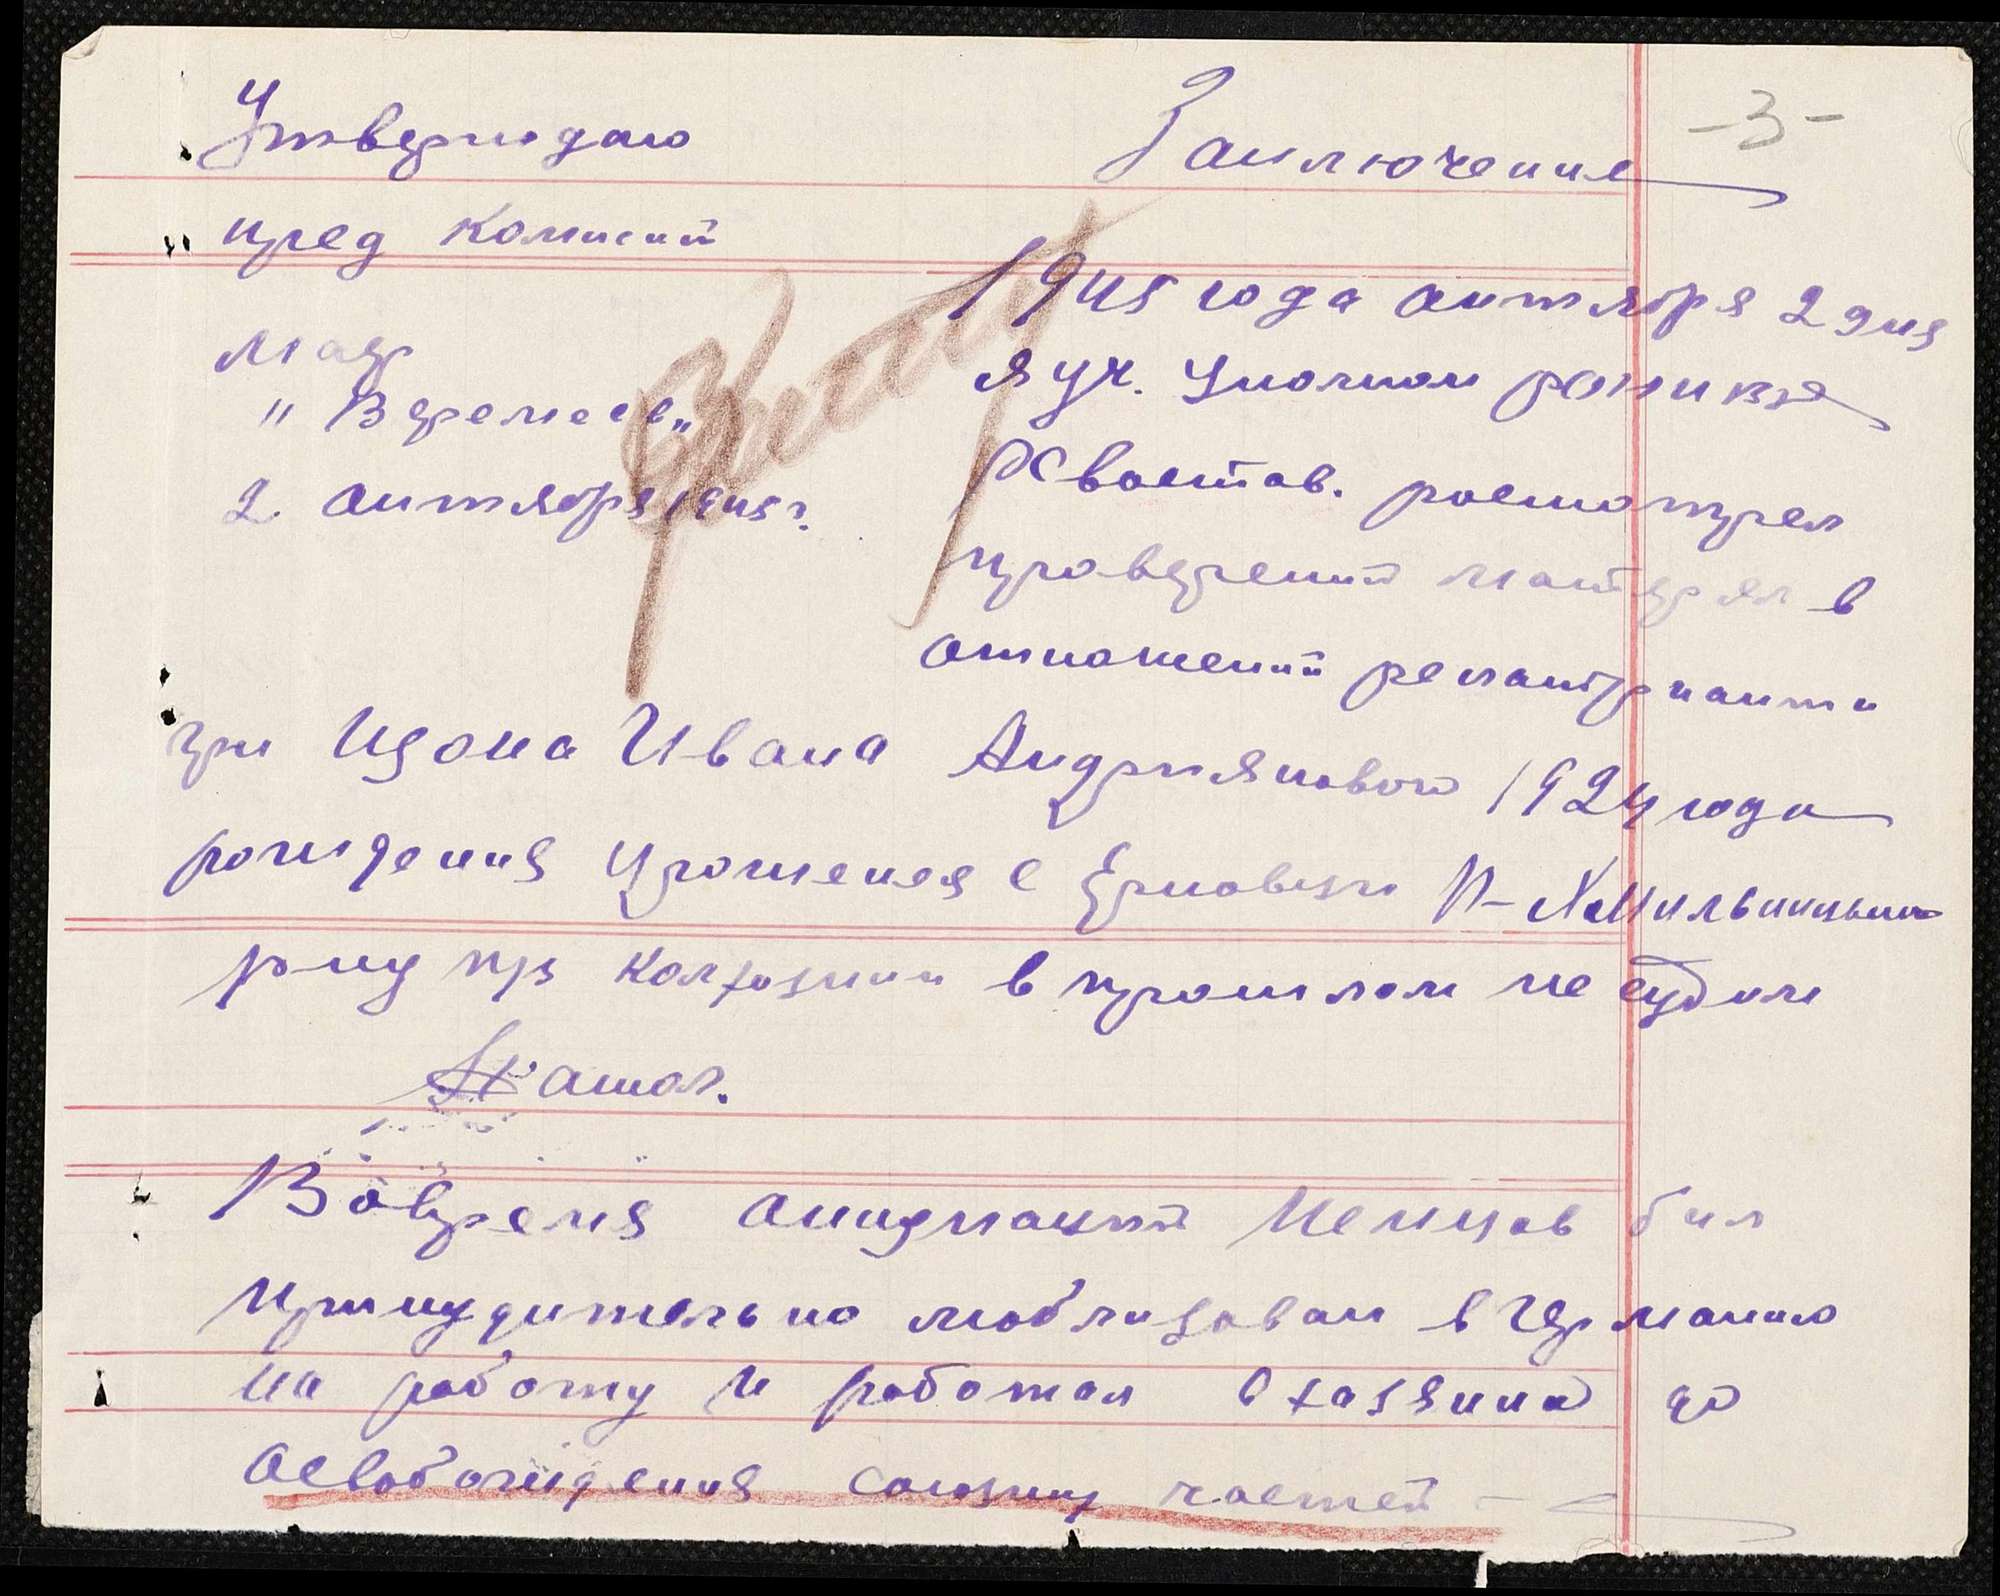 -3-
Утверждаю
пред комисий
Маер
" Веремеев "
2 октября 1945 г.
Заключение
1945 года октября 2 дня
я уч. Уполном
Хвостов. росмотрел
проверений матерял в
отношений репатрианта
Изона Ивана Андрияновой 1924 года
рождения Урожения с Ерновцы У-Хмильницьки
р-ну из колхозник в прошлом не судим
Холост.
Вовремя окиднаций Немцов бил
принудительно моблизован в германию
на работу и работал в хазяина до
освобождения союзниу частей -